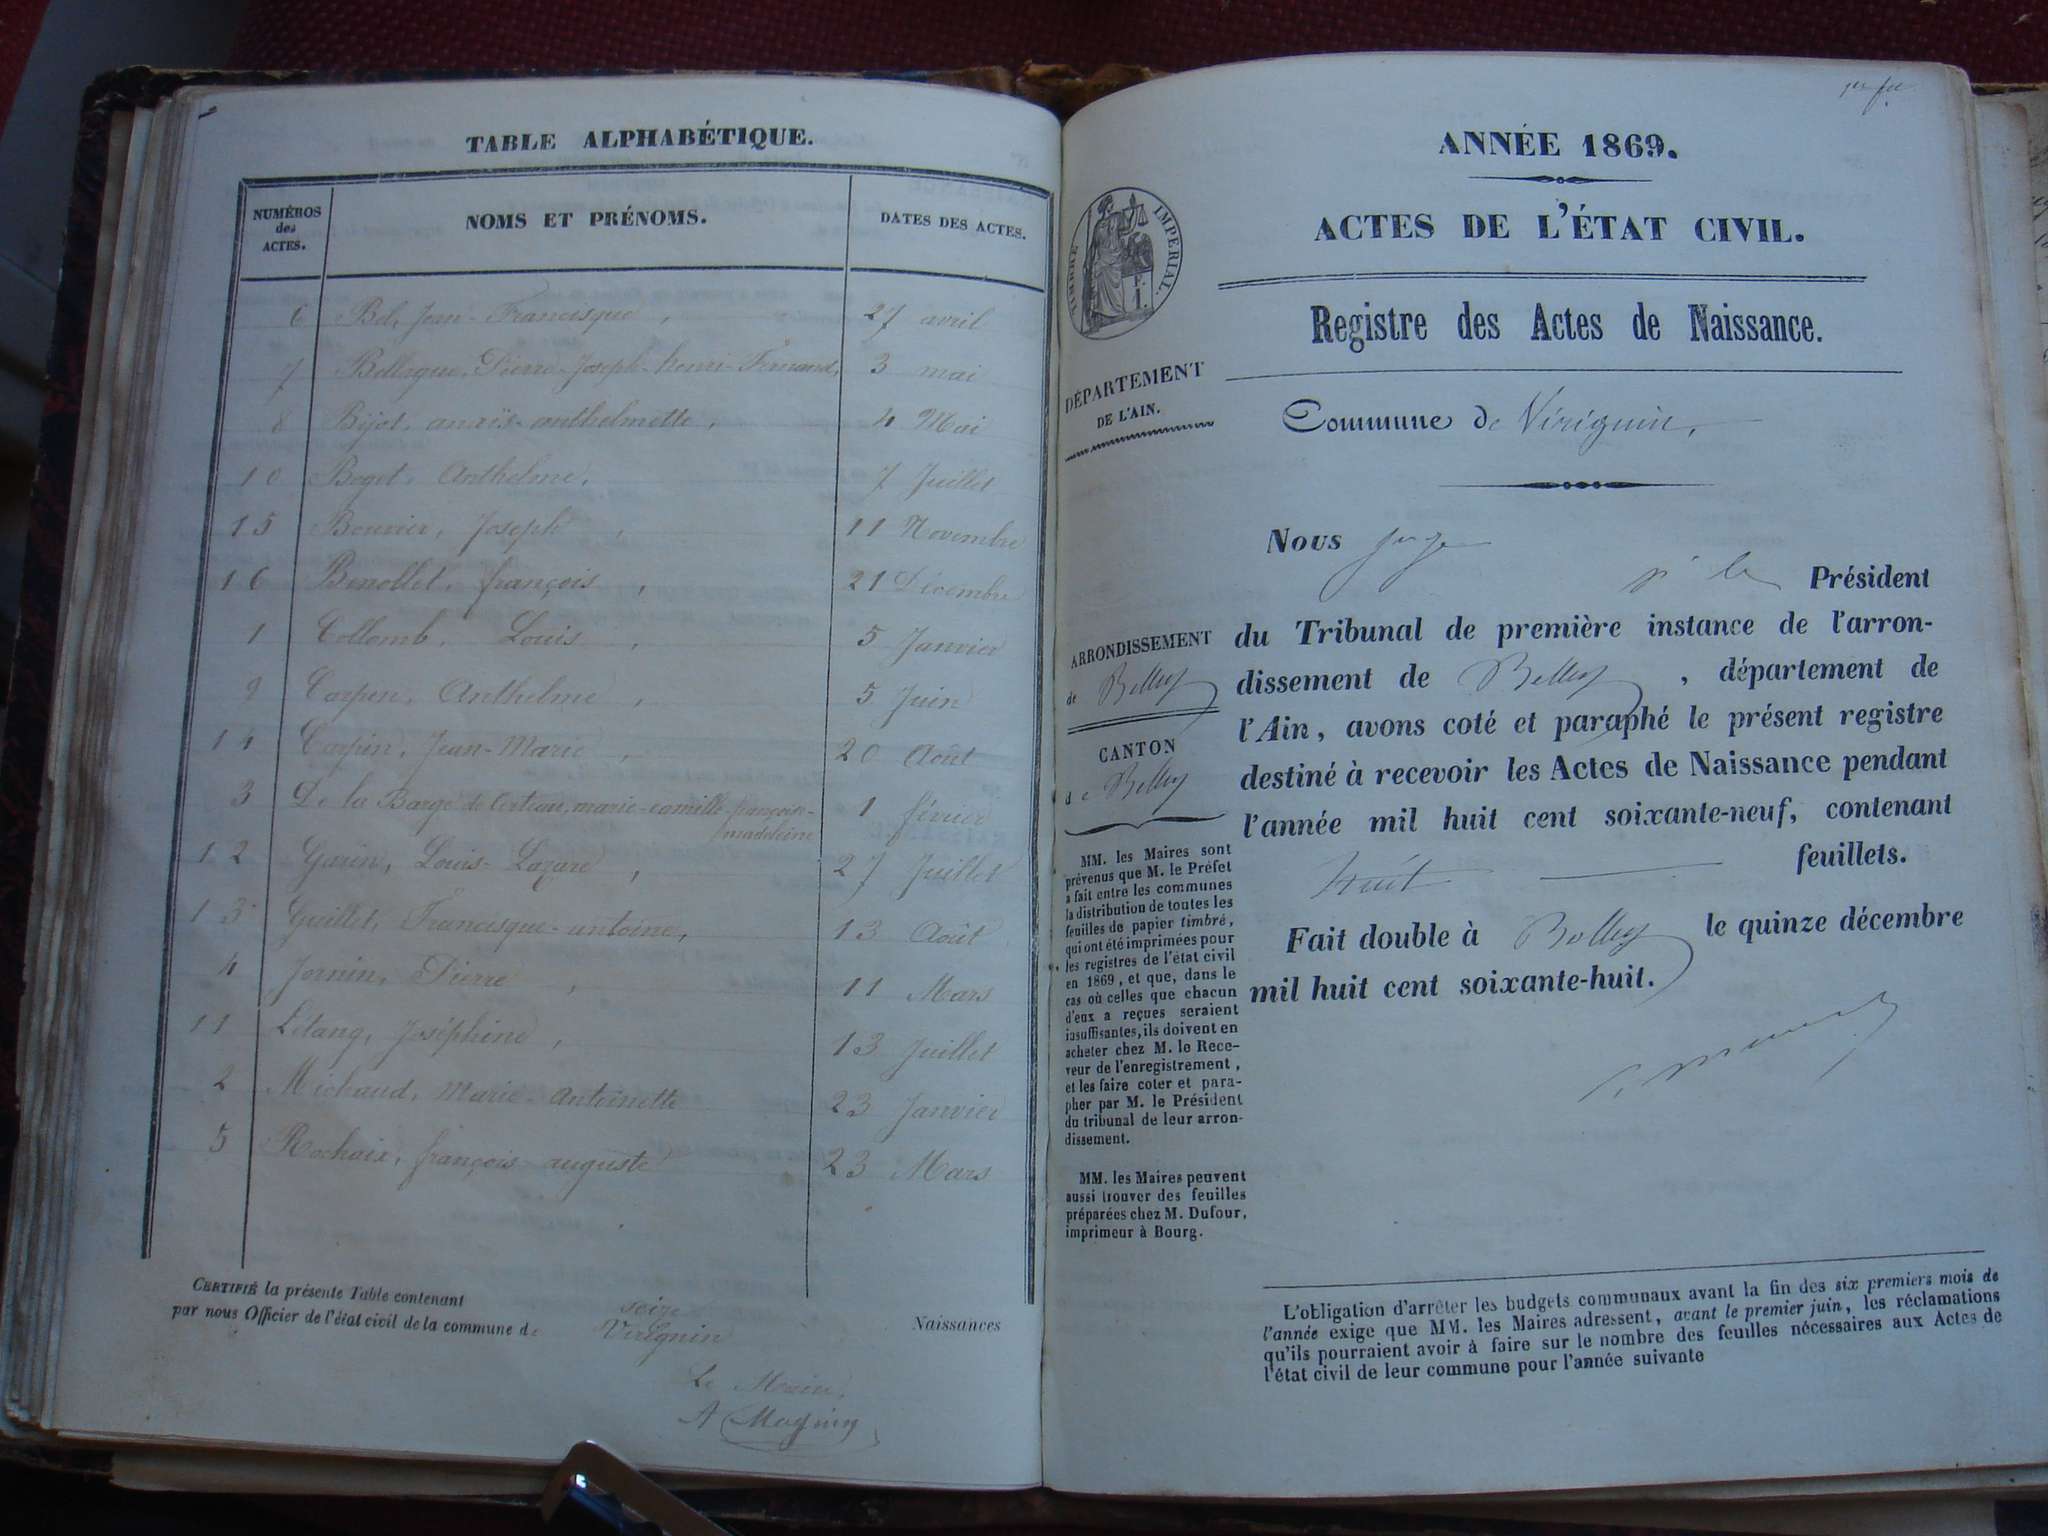 TABLE ALPHABÉTIQUE.
NUMÉROS
des
ACTES.
NOMS ET PRÉNOMS.
DATES DES ACTES.
6 Bel, Jean-Francisque, 27 avril
7 Pierre-Joseph-henri-Fernand, 3 mai
8 Bijot, anaïs-anthelmette, 4 Mai
10 Anthelme, 7 Juillet
15 Bouvier, Joseph, 11 Novembre
16 Benollet, françois, 21 Décembre
1 Collomb, Louis, 5 Janvier
9 Carpin, Anthelme, 5 Juin
14 Carpin, Jean-Marie, 20 Août
3 De la Barge de Certeau, marie-camille-françoise- 1 février
madeleine
12 Garin, Louis-Lazare, 27 Juillet
13 Guillet, Francisque-antoine, 13 Août
4 Jornin, Pierre, 11 Mars
11 Létang, Joséphine, 13 Juillet
2 Michaud, Marie-Antoinette 23 Janvier
5 Rochaix, françois auguste 23 Mars
CERTIFIÉ la présente Table contenant seize Naissances
par nous Officier de l'état civil de la commune de Virignin
Le Maire,
A Magnin
1er fet
ANNÉE 1869.
ACTES DE L'ÉTAT CIVIL.
TIMBRE IMPERIAL.
Registre des Actes de Naissance.
DÉPARTEMENT
DE L'AIN.
Commune de Virignin,
Nous juge
pr le Président
du Tribunal de première instance de l'arron-
dissement de Belley, département de
l'Ain, avons coté et paraphé le présent registre
destiné à recevoir les Actes de Naissance pendant
l'année mil huit cent soixante-neuf, contenant
huit feuillets.
Fait double à Belley le quinze décembre
mil huit cent soixante-huit.
ARRONDISSEMENT
de Belley
CANTON
de Belley
MM. les Maires sont
prévenus que M. le Préfet
a fait entre les communes
la distribution de toutes les
feuilles de papier timbré,
qui ont été imprimées pour
les registres de l'état civil
en 1869, et que, dans le
cas où celles que chacun
d'eux a reçues seraient
insuffisantes, ils doivent en
acheter chez M. le Rece-
veur de l'enregistrement,
et les faire coter et para-
pher par M. le Président
du tribunal de leur arron-
dissement.
MM. les Maires peuvent
aussi trouver des feuilles
préparées chez M. Dufour,
imprimeur à Bourg.
L'obligation d'arrêter les budgets communaux avant la fin des six premiers mois de
l'année exige que MM. les Maires adressent, avant le premier juin, les réclamations
qu'ils pourraient avoir à faire sur le nombre des feuilles nécessaires aux Actes de
l'état civil de leur commune pour l'année suivante